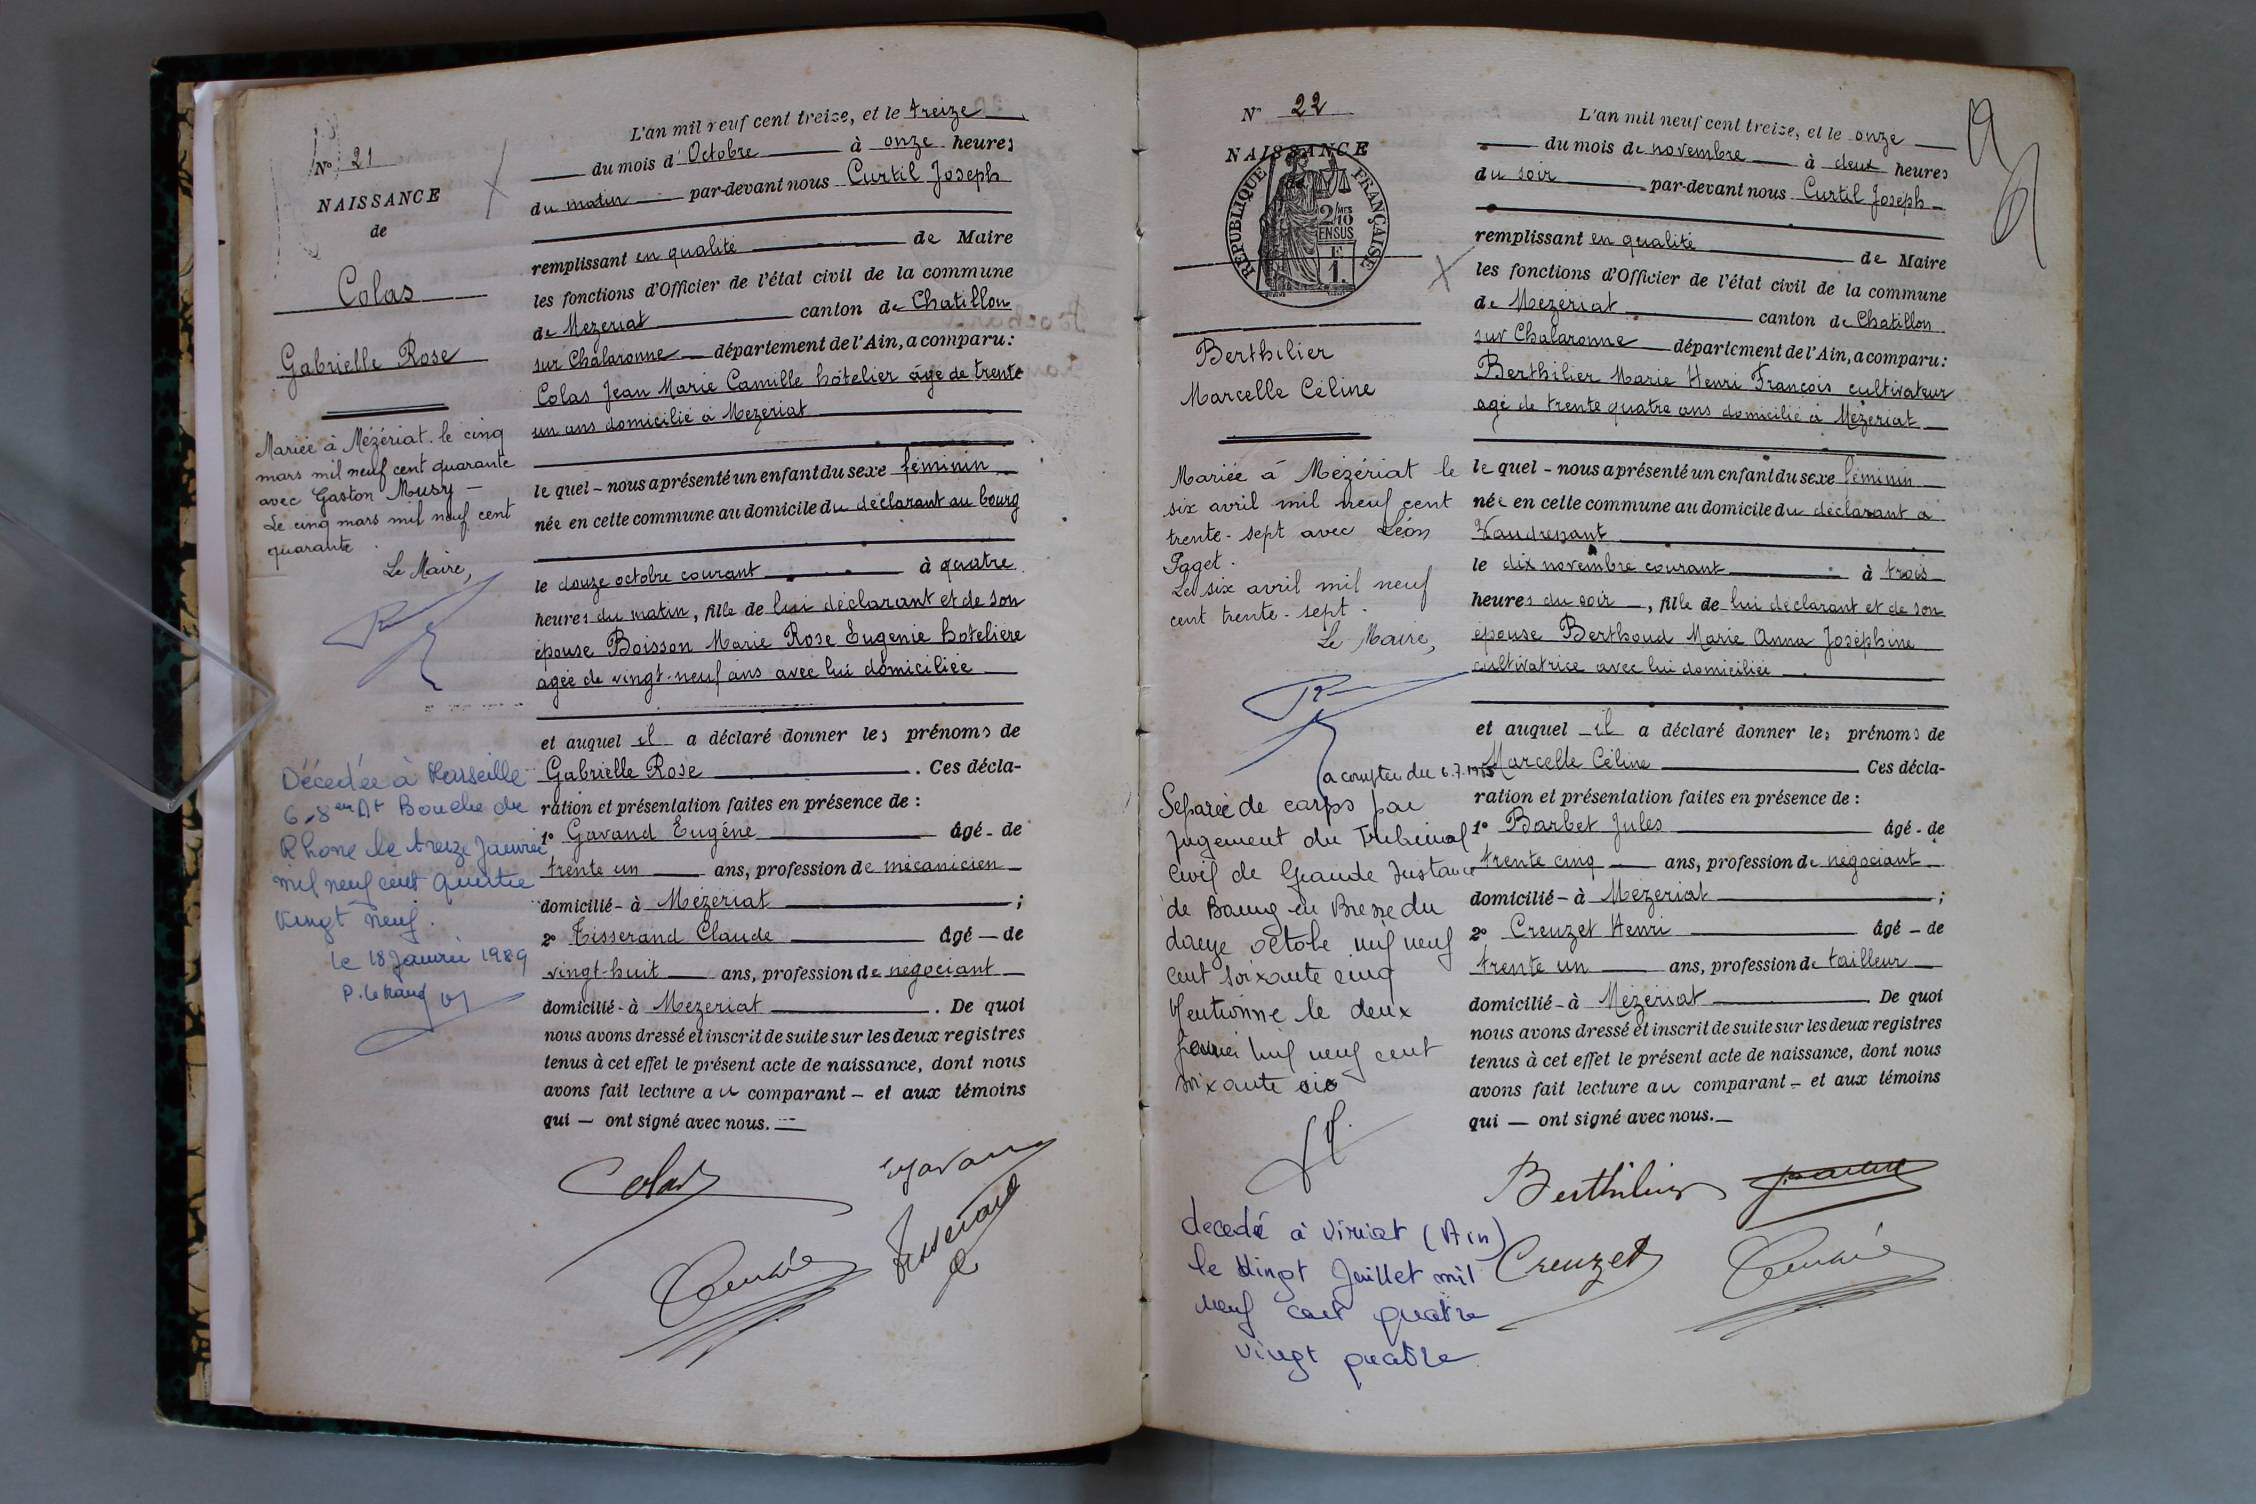 Nº 21
NAISSANCE
de
Colas
Gabrielle Rose
Mariée à Mézériat le cinq
mars mil neuf cent quarante
avec Gaston Musy —
Le cinq mars mil neuf cent
quarante.
Le Maire,
Décédée à Marseille
6-8em At Bouche du
Rhone le treize Janvier
mil neuf cent quatre
vingt neuf.
le 18 Janvier 1989
L'an mil neuf cent treize, et le treize
du mois d'Octobre à onze heures
du matin par-devant nous Curtil Joseph
remplissant en qualité de Maire
les fonctions d'Officier de l'état civil de la commune
de Mézériat canton de Chatillon
sur Chalaronne département de l'Ain, a comparu:
Colas Jean Marie Camille hôtelier âgé de trente
un ans domicilié à Mézériat
le quel - nous a présenté un enfant du sexe féminin
née en cette commune au domicile du déclarant au bourg
le douze octobre courant à quatre
heures du matin, fille de lui déclarant et de son
épouse Boisson Marie Rose Eugénie hotelière
agée de vingt-neuf ans avec lui domiciliée
et auquel il a déclaré donner les prénoms de
Gabrielle Rose. Ces décla-
ration et présentation faites en présence de :
1º Gavand Eugéne âgé - de
trente un ans, profession de mécanicien
domicilié - à Mézériat ;
2º Tisserand Claude âgé — de
vingt-huit ans, profession de négociant
domicilié - à Mézériat. De quoi
nous avons dressé et inscrit de suite sur les deux registres
tenus à cet effet le présent acte de naissance, dont nous
avons fait lecture au comparant — et aux témoins
qui — ont signé avec nous. —
Colas
Tisserand
Nº 22
NAISSANCE
RÉPUBLIQUE FRANÇAISE
2/10 MES
EN SUS
1F
Berthilier
Marcelle Céline
Mariée à Mézériat le
six avril mil neuf cent
trente-sept avec Léon
Paget.
Le six avril mil neuf
cent trente-sept.
Le Maire,
a compter du 6.7.1965
Separée de corps par
Jugement du Tribunal
Civil de Grande Instance
de Bourg en Bresse du
douze octobre mil neuf
cent soixante cinq
Mentionné le deux
mil neuf cent
soixante six
decedé à Viriat (Ain)
le Vingt Juillet mil
neuf cent quatre
vingt quatre
L'an mil neuf cent treize, et le onze
du mois de novembre à deux heures
du soir par-devant nous Curtil Joseph
remplissant en qualité de Maire
les fonctions d'Officier de l'état civil de la commune
de Mézériat canton de Chatillon
sur Chalaronne département de l'Ain, a comparu:
Berthilier Marie Henri François cultivateur
agé de trente quatre ans domicilié à Mézériat
le quel - nous a présenté un enfant du sexe féminin
née en cette commune au domicile du déclarant a
le dix novembre courant à trois
heures du soir, fille de lui déclarant et de son
épouse Berthoud Marie Anna Joséphine
cultivatrice avec lui domiciliée
et auquel il a déclaré donner les prénoms de
Marcelle Céline Ces décla-
ration et présentation faites en présence de :
1º Barbet Jules âgé - de
trente cinq ans, profession de négociant
domicilié - à Mézériat ;
2º Creuzet Henri âgé - de
trente un ans, profession de tailleur
domicilié - à Mézériat. De quoi
nous avons dressé et inscrit de suite sur les deux registres
tenus à cet effet le présent acte de naissance, dont nous
avons fait lecture au comparant - et aux témoins
qui — ont signé avec nous. —
Berthilier
Creuzet